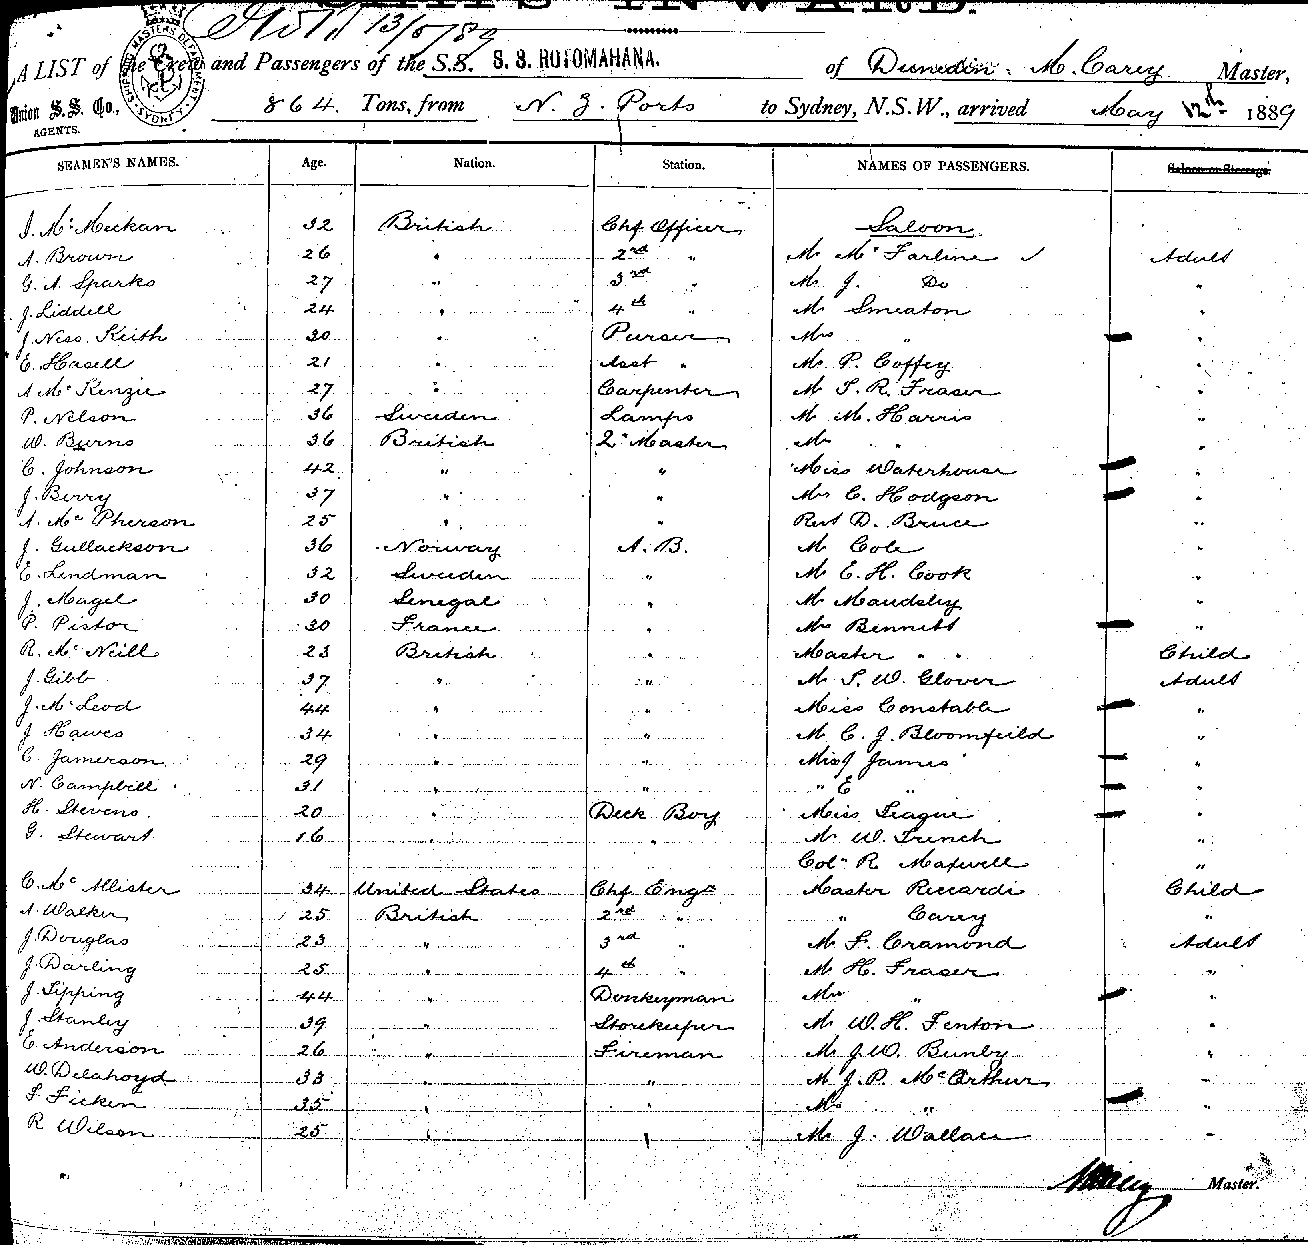 SHIPS INWARD.
13/5/89
A LIST of the Crew and Passengers of the S.S. S. S. ROTOMAHANA. of Dunedin. M. Carey Master,
Union S. S. Co., AGENTS. 864. Tons, from N. Z. Ports to Sydney, N.S.W., arrived May 12th 1889
SHIPPING MASTERS DEPARTMENT SYDNEY
SEAMEN'S NAMES. Age. Nation. Station. NAMES OF PASSENGERS. Saloon or Steerage.
J. McMeekan 32 British Chf Officer Saloon
A. Brown 26 " 2nd " Mr McFarline ✓ Adult
G. A. Sparks 27 " 3rd " Mr J. Do "
J. Liddell 24 " 4th " Mr Smeaton "
J. Niss. Keith 30 " Purser Mrs " "
E. Hasell 21 " Asst " Mr P. Coffey "
A McKenzie 27 " Carpenter Mr S. R. Fraser "
P. Nelson 36 Sweden Lamps Mr M. Harris "
W. Burns 36 British 2r Master Mr " "
C. Johnson 42 " " Miss Waterhouse "
J. Berry 37 " " Mrs C. Hodgson "
A. McPherson 25 " " Revd D. Bruce "
J. Gullackson 36 Norway A. B. Mr Cole "
E. Lindman 32 Sweden " Mr E. H. Cook "
J. Magel 30 Senegal " Mr Maudsley "
P. Pistor 30 France " Mrs Bennett "
R. McNeill 23 British " Master " " Child
J. Gibb 37 " " Mr S. W. Glover Adult
J. McLeod 44 " " Miss Constable "
J Hawes 34 " " Mr C. J. Bloomfeild "
C. Jamerson 29 " " Miss J James "
N. Campbell 31 " " " E " "
H. Stevens. 20 " Deck Boy Miss League "
G. Stewart 16 " " Mr W. French "
Col. R. Maxwell "
C. McAllister 34 United States Chf Engr Master Riccardi Child
A. Walker 25 British 2nd " " Carey "
J. Douglas 23 " 3rd " Mr F. Cramond Adult
J. Darling 25 " 4th " Mr H. Fraser "
J. Tipping 44 " Donkeyman Mrs " "
J. Stanley 39 " Storekeeper Mr W. H. Fenton "
E. Anderson 26 " Fireman Mr J. W. Bunby "
W. Delahoyd 33 " " Mr J. P. McArthur "
F. Ficken 35 " " Mrs " "
R Wilson 25 " " Mr J. Wallace "
M Carey Master.